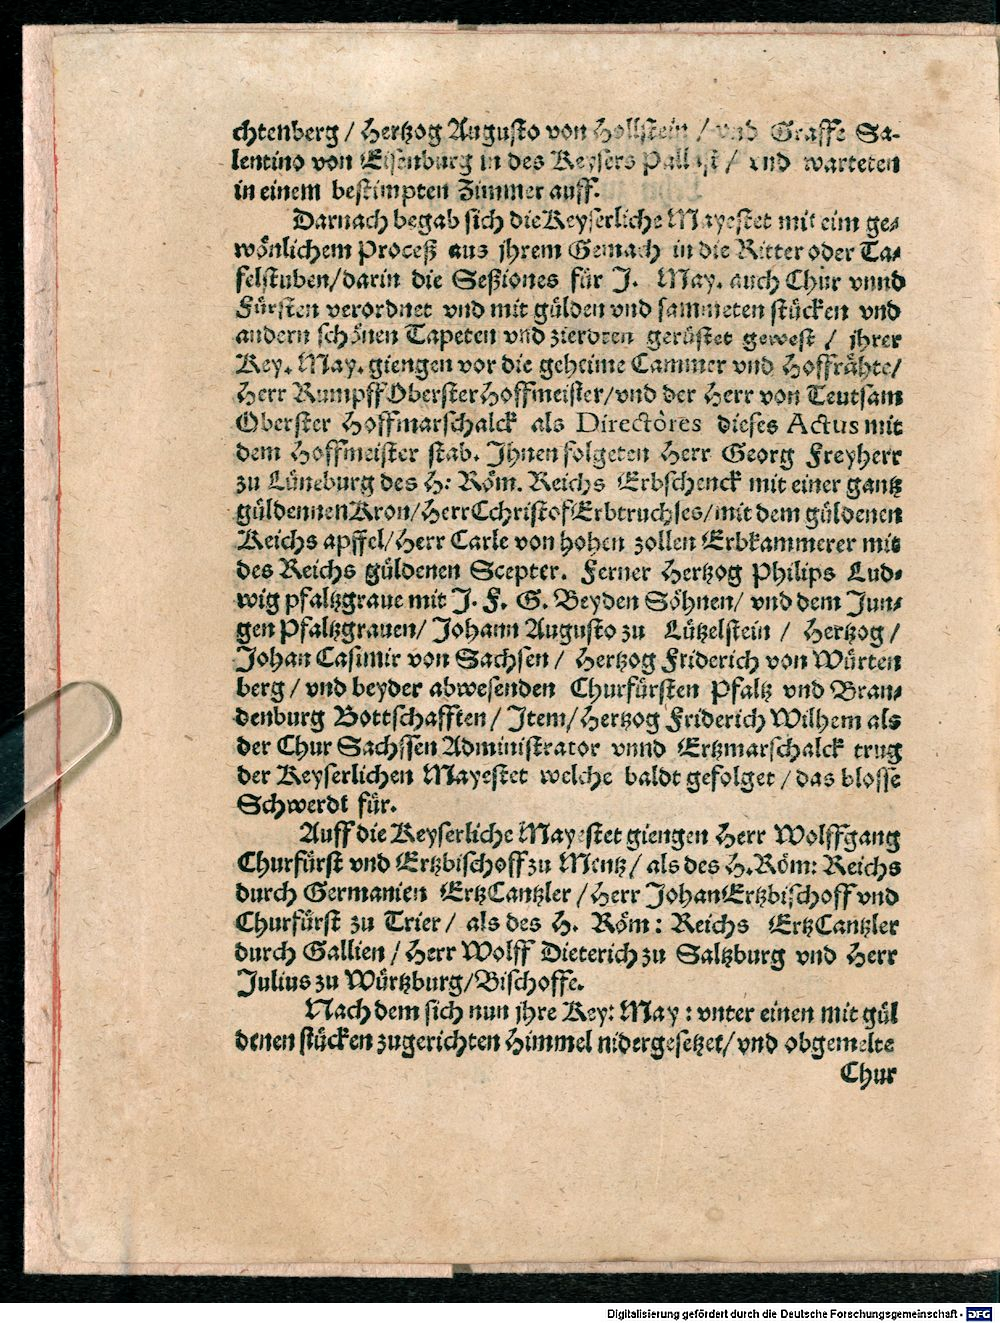 chtenberg / Hertzog Augusto von Hollstein / vnd Graffe Sa-
lentino von Eisenburg in des Keysers Pallast / vnd warteten
in einem bestimpten Zimmer auff.
Darnach begab sich die Keyserliche Mayestet mit eim ge-
wönlichem Proceß aus jhrem Gemach in die Ritter oder Ta-
felstuben/darin die Seßiones für J. May. auch Chur vnnd
Fürsten verordnet vnd mit gülden vnd sammeten stücken vnd
andern schönen Tapeten vnd zierdten gerüstet gewest / jhrer
Key. May. giengen vor die geheime Cammer vnd Hoffrähte/
Herr Rumpff Oberster Hoffmeister/vnd der Herr von Teutsam
Oberster Hoffmarschalck als Directores dieses Actus mit
dem Hoffmeister stab. Jhnen folgeten Herr Georg Freyherr
zu Lüneburg des H: Röm. Reichs Erbschenck mit einer gantz
güldennen Kron/Herr Cchristof Erbtruchses/mit dem güldenen
Reichs apffel/Herr Carle von hohen zollen Erbkammerer mit
des Reichs güldenen Scepter. Ferner Hertzog Philips Lud-
wig pfaltzgraue mit J. F. G. Beyden Söhnen/ vnd dem Jun-
gen Pfaltzgrauen/ Johann Augusto zu Lützelstein / Hertzog /
Johan Casimir von Sachsen / Hertzog Friderich von Würten
berg / vnd beyder abwesenden Churfürsten Pfaltz vnd Bran-
denburg Bottschafften / Jtem/ Hertzog Friderich Wilhem als
der Chur Sachssen Administrator vnnd Ertzmarschalck trug
der Keyserlichen Mayestet welche baldt gefolget / das blosse
Schwerdt für.
Auff die Keyserliche Mayestet giengen Herr Wolffgang
Churfürst vnd Ertzbischoff zu Mentz / als des H. Röm: Reichs
durch Germanien ErtzCantzler / Herr Johan Ertzbischoff vnd
Churfürst zu Trier / als des H. Röm: Reichs ErtzCantzler
durch Gallien / Herr Wolff Dieterich zu Saltzburg vnd Herr
Julius zu Würtzburg/Bischoffe.
Nach dem sich nun jhre Key: May : vnter einen mit gül
denen stücken zugerichten Himmel nidergesetzet/ vnd obgemelte
Chur
Digitalisierung gefördert durch die Deutsche Forschungsgemeinschaft - DFG